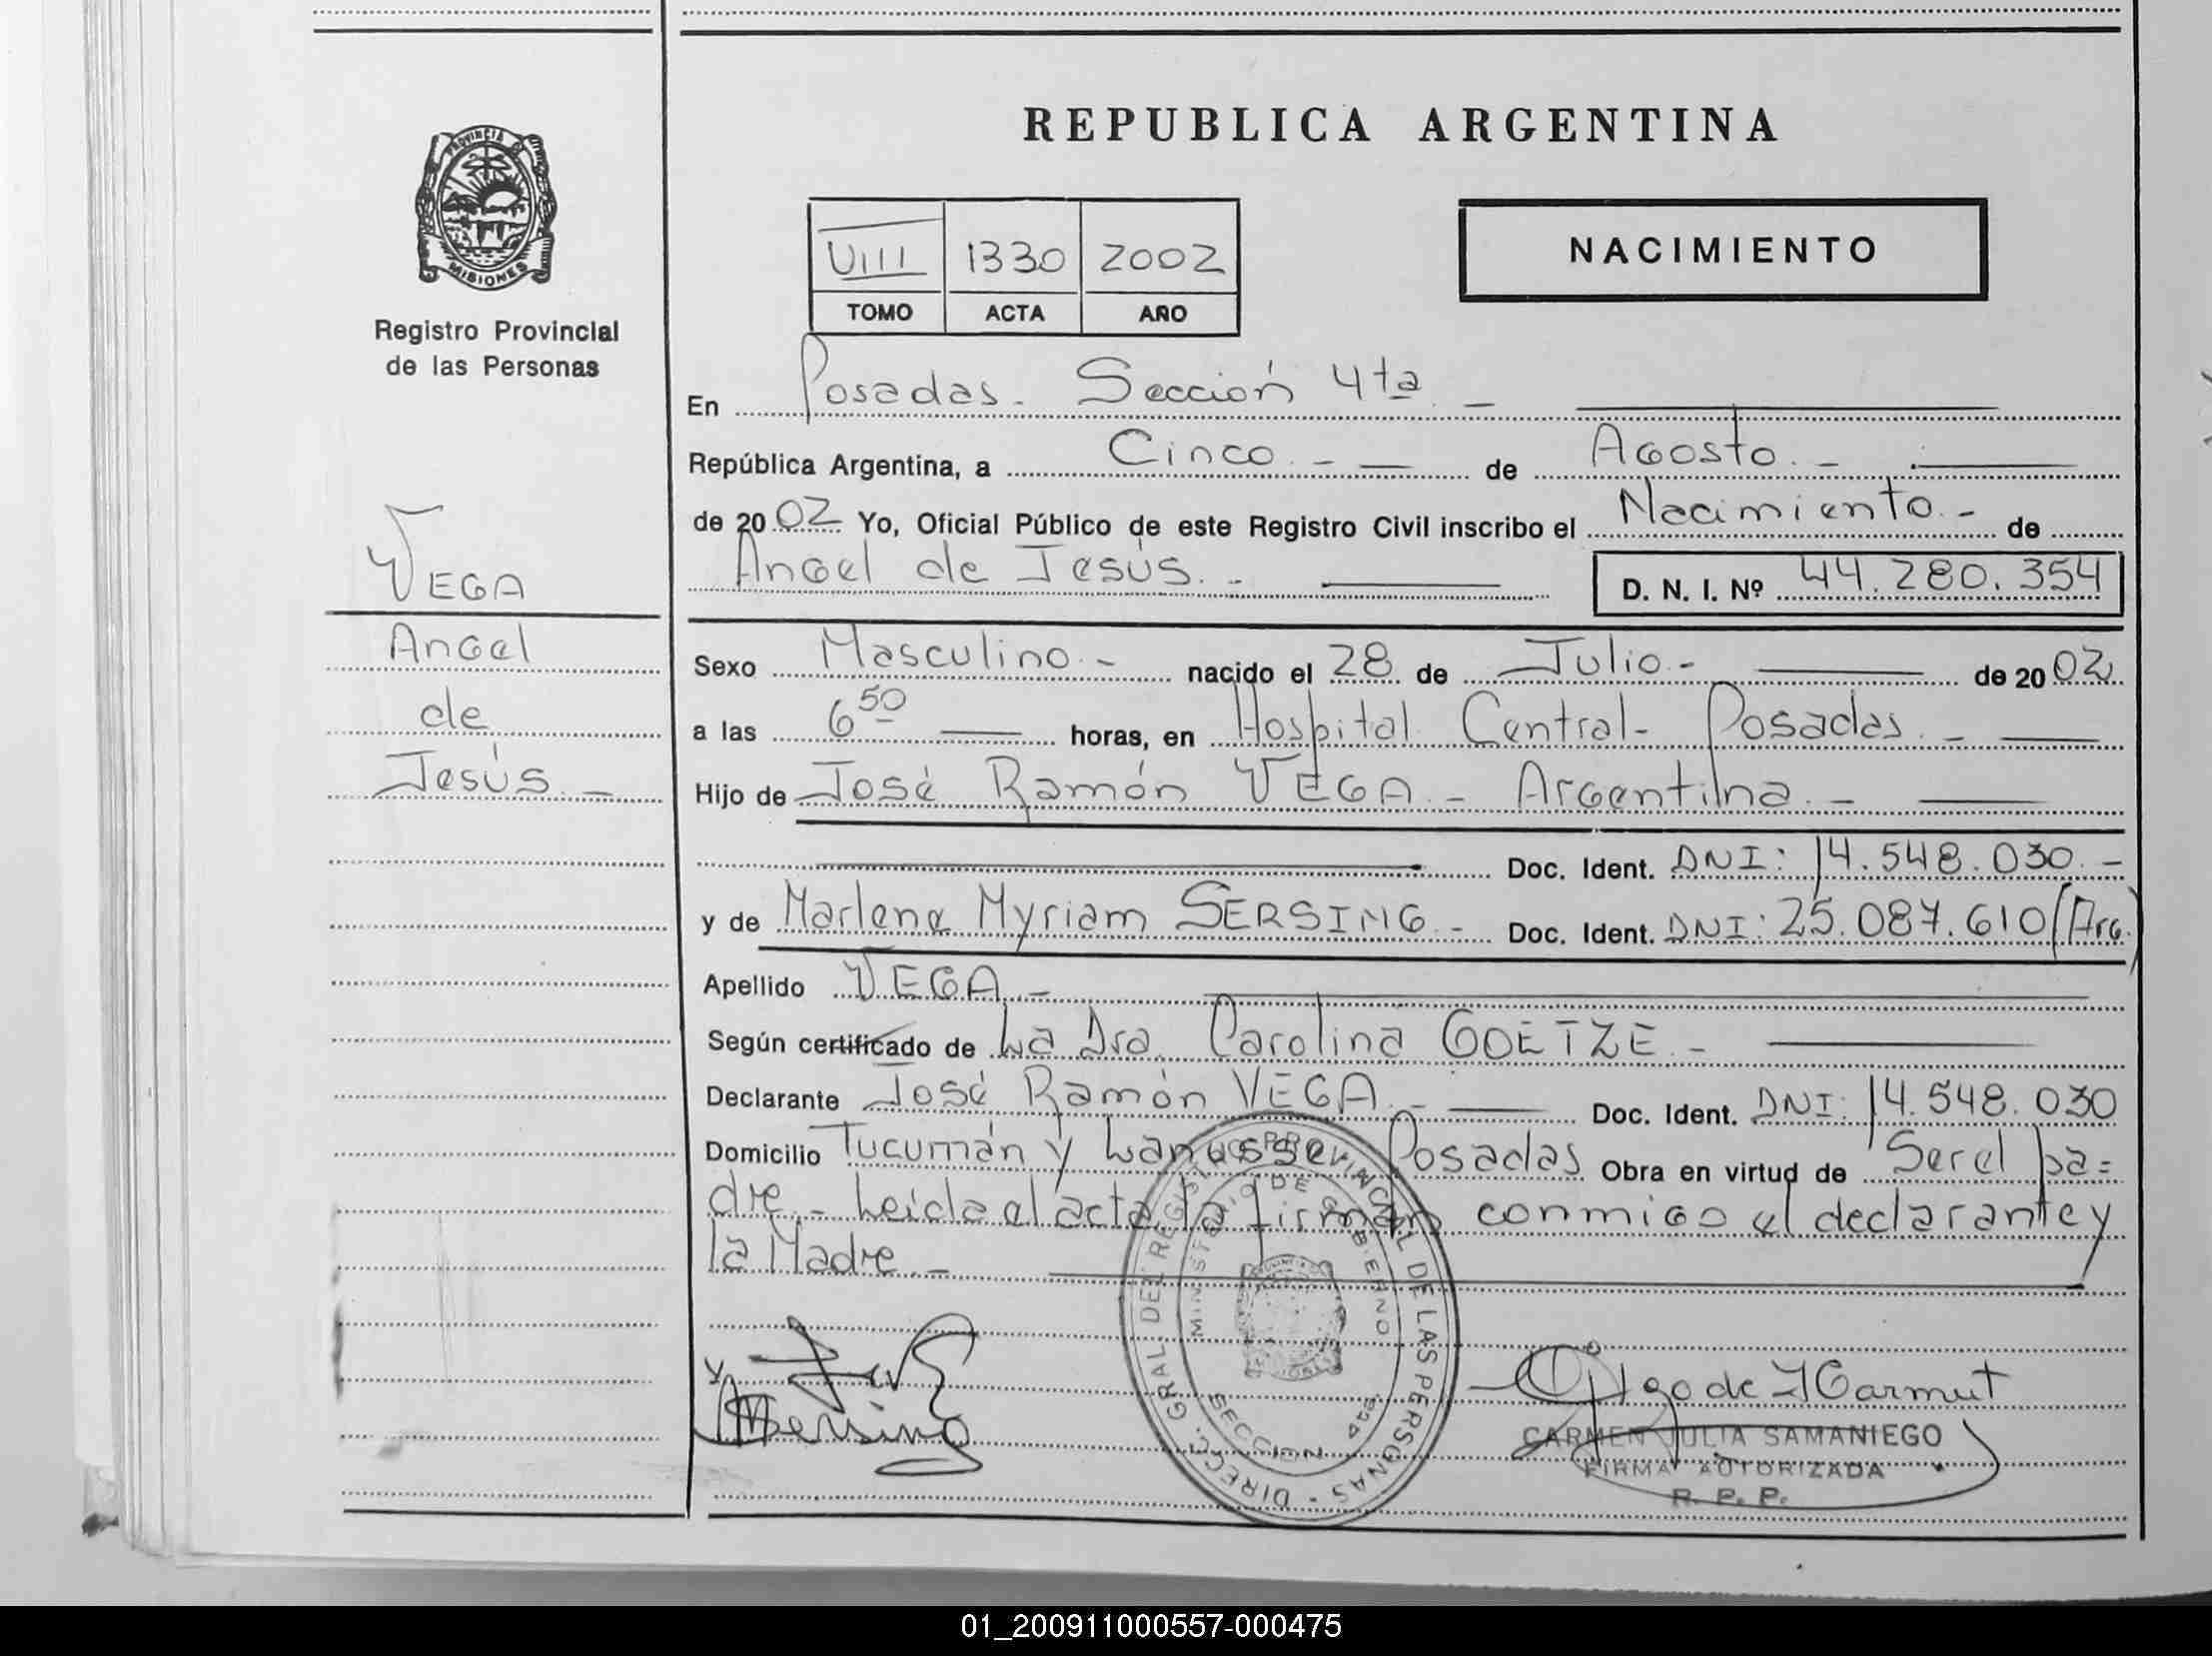 REPUBLICA ARGENTINA
PROVINCIA D
MISIONES
Registro Provincial
de las Personas
VEGA
Angel
de
Jesús. -
VIII 1330 2002
TOMO ACTA AÑO
NACIMIENTO
En Posadas. Sección 4ta. -
República Argentina, a Cinco. - de Agosto. -
de 2002 Yo, Oficial Público de este Registro Civil inscribo el Nacimiento. - de
Angel de Jesús. - D. N. I. Nº 44.280.354
Sexo Masculino. - nacido el 28 de Julio. - de 2002
a las 6 50 horas, en Hospital Central - Posadas. -
Hijo de José Ramón VEGA. - Argentina. -
Doc. Ident. DNI: 14.548.030. -
y de Marlene Myriam SERSING. - Doc. Ident. DNI: 25.087.610 (Arg.)
Apellido VEGA. -
Según certificado de La Dra. Carolina GOETZE. -
Declarante José Ramón VEGA. - Doc. Ident. DNI: 14.548.030
Domicilio Tucumán y Lanusse, Posadas Obra en virtud de Ser el pa=
dre. - Leída el acta, la firman conmigo el declarante y
la Madre. -
DIRECC. GRAL DEL REGISTRO PROVINCIAL DE LAS PERSONAS
MINISTERIO DE GOBIERNO
SECCION 4ta
Sersing
CARMEN JULIA SAMANIEGO
FIRMA AUTORIZADA
R. P. P.
01_200911000557-000475